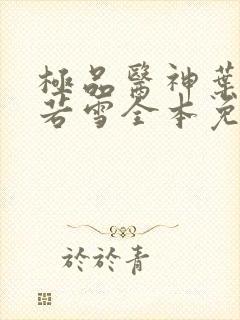 極品醫神葉
若雪全本免
於於青